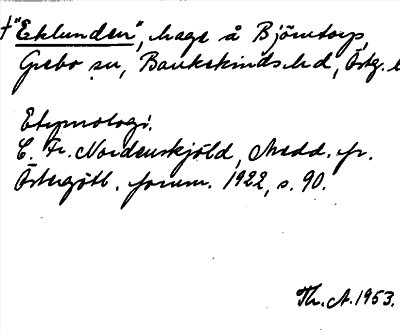 †"Eklunden", hage å Björntorp,
Grebo sn, Bankekinds hd, Östg. l
Etymologi.
C. Fr. Nordenskjöld, Medd. fr.
Östergötl. fornm. 1922, s. 90.
Th. A. 1953.